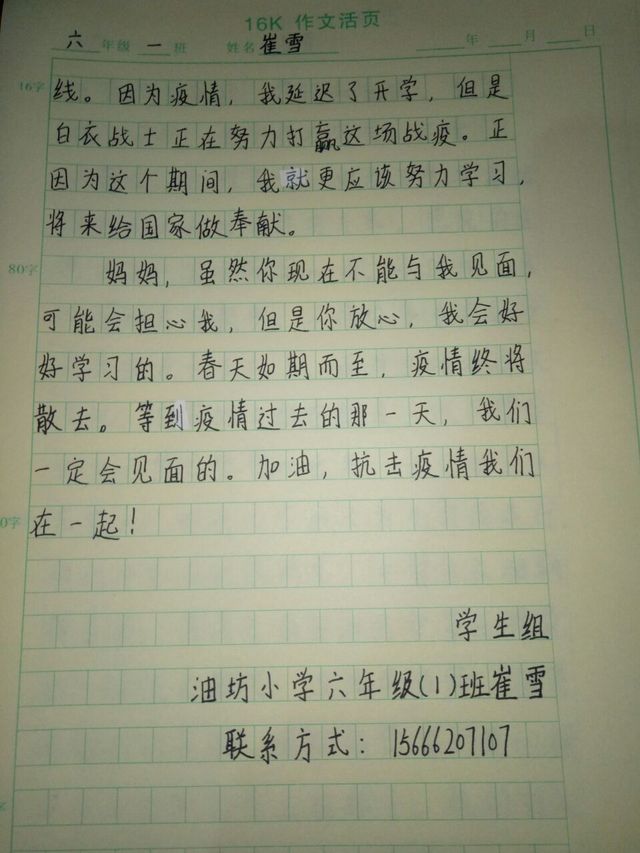 16K 作文活页
六年级一班 姓名崔雪 年 月 日
16字
线。因为疫情，我延迟了开学，但是
白衣战士正在努力打赢这场战疫。正
因为这个期间，我就更应该努力学习，
将来给国家做奉献。
80字
妈妈，虽然你现在不能与我见面，
可能会担心我，但是你放心，我会好
好学习的。春天如期而至，疫情终将
散去。等到疫情过去的那一天，我们
一定会见面的。加油，抗击疫情我们
0字
在一起！
学生组
油坊小学六年级(1)班崔雪
联系方式：15666207107